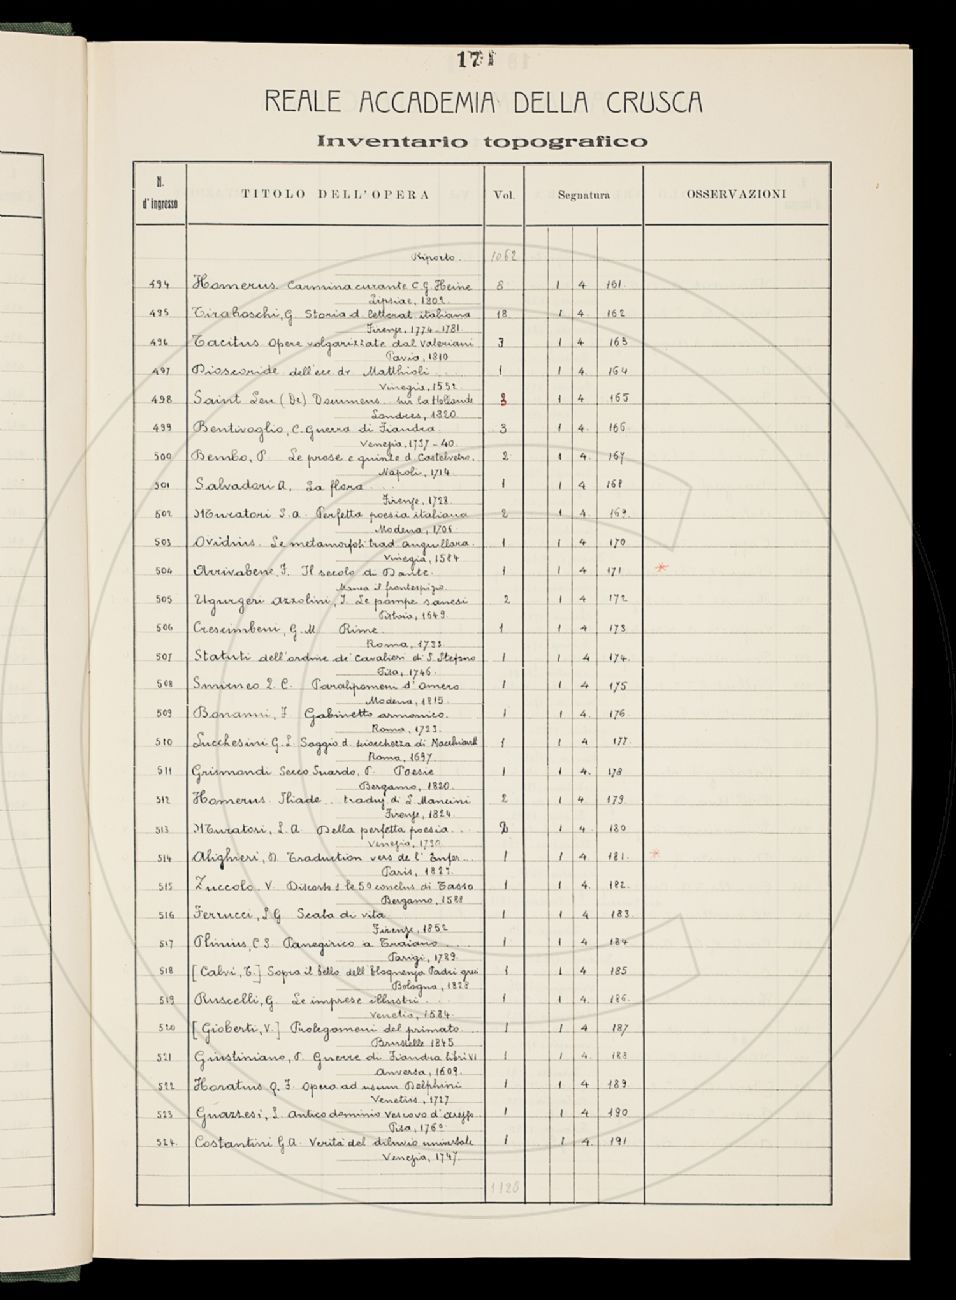 171
REALE ACCADEMIA DELLA CRUSCA
Inventario topografico
N. d'ingresso TITOLO DELL'OPERA Vol. Segnatura OSSERVAZIONI
Riporto. 1062
494 Homerus Carmina curante C. G. Heine 8 1 4 161.
Lipsiae, 1802.
495 Tiraboschi, G Storia d. letterat italiana 18 1 4. 162
Firenze, 1774-1781
496 Tacitus Opere volgarizzate dal Valeriani 3 1 4 163
Pavia, 1810
497 Dioscoride dell'ecc dr Matthioli 1 1 4. 164
Vinegia, 1552
498 Saint Leu (De) Documens sur la Hollande 3 1 4 165
Londres, 1820
499 Bentivoglio, C. Guerra di Fiandra 3 1 4. 166
Venezia, 1737-40.
500 Bembo, P. Le prose e giunte d. Castelvetro. 2 1 4. 167
Napoli, 1714.
501 Salvadori A. La flora 1 1 4 168
Firenze, 1728.
502 Muratori L. a. Perfetta poesia italiana 2 1 4. 169.
Modena, 1706.
503 Ovidius. Le metamorfosi trad anguillara. 1 1 4 170
Vinegia, 1584
504 Arrivabene, F. Il secolo di Dante. 1 1 4 171 *
Manca il frontespizio.
505 Ugurgeri Azzolini, I. Le pompe sanesi 2 1 4 172
Pistoia, 1649.
506 Crescimbeni, G. M Rime. 1 1 4 173
Roma, 1723.
507 Statuti dell'ordine de' Cavalieri di S. Stefano 1 1 4 174.
Pisa, 1746.
508 Smirneo Q. C. Paralipomeni d' Omero 1 1 4 175
Modena, 1815.
509 Bonanni, F Gabinetto armonico. 1 1 4. 176
Roma, 1723.
510 Lucchesini G. L. Saggio d. sciocchezza di 1 1 4 177.
Roma, 1697.
511 Grismondi Secco Suardo, P. Poesie 1 1 4. 178
Bergamo, 1820.
512 Homerus Iliade traduz. di L Mancini 2 1 4 179.
Firenze, 1824
513 Muratori, L. A Della perfetta poesia 2 1 4 180
Venezia, 1730.
514 Alighieri, D. Traduction vers de l' Enfer 1 1 4 181. *
Paris, 1823.
515 Zuccolo. V. Discorso s. le 50 conclus di Tasso 1 1 4. 182.
Bergamo, 1588
516 Ferrucci, L. G Scala di vita 1 1 4 183.
Firenze, 1852
517 Plinius, C S. Panegirico a Traiano 1 1 4 184
Parigi, 1789.
518 [Calvi, T.] Sopra il bello dell'eloquenza Padri greci 1 1 4 185
Bologna, 1828
519 Ruscelli, G. Le imprese illustri 1 1 4. 186.
Venetia, 1584.
520 [Gioberti, V.] Prolegomeni del primato 1 1 4 187
Brusselle 1845
521 Giustiniano, P. Guerre di Fiandra libri VI 1 1 4. 188
Anversa, 1609.
522 Horatius Q. F. Opera ad usum Delphini 1 1 4 189
Venetiis, 1727
523 Guazzesi, L. Antico dominio Vescovo d'arezzo 1 1 4 190
Pisa, 1760
524. Costantini G. A. Verità del diluvio universale 1 1 4. 191
Venezia, 1747.
1128